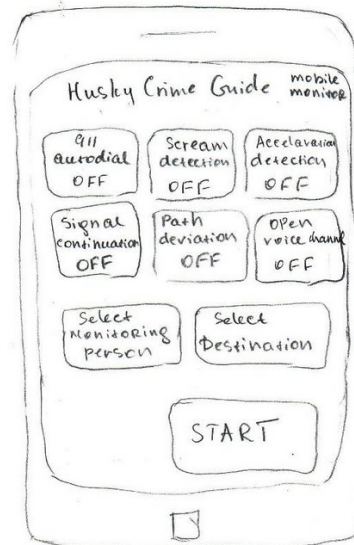 Husky Crime Guide
mobile
monitor
911
autodial
OFF
Scream
detection
OFF
Accelaration
detection
OFF
Signal
continuation
OFF
Path
deviation
OFF
Open
voice channel
OFF
Select
Monitoring
person
Select
Destination
START